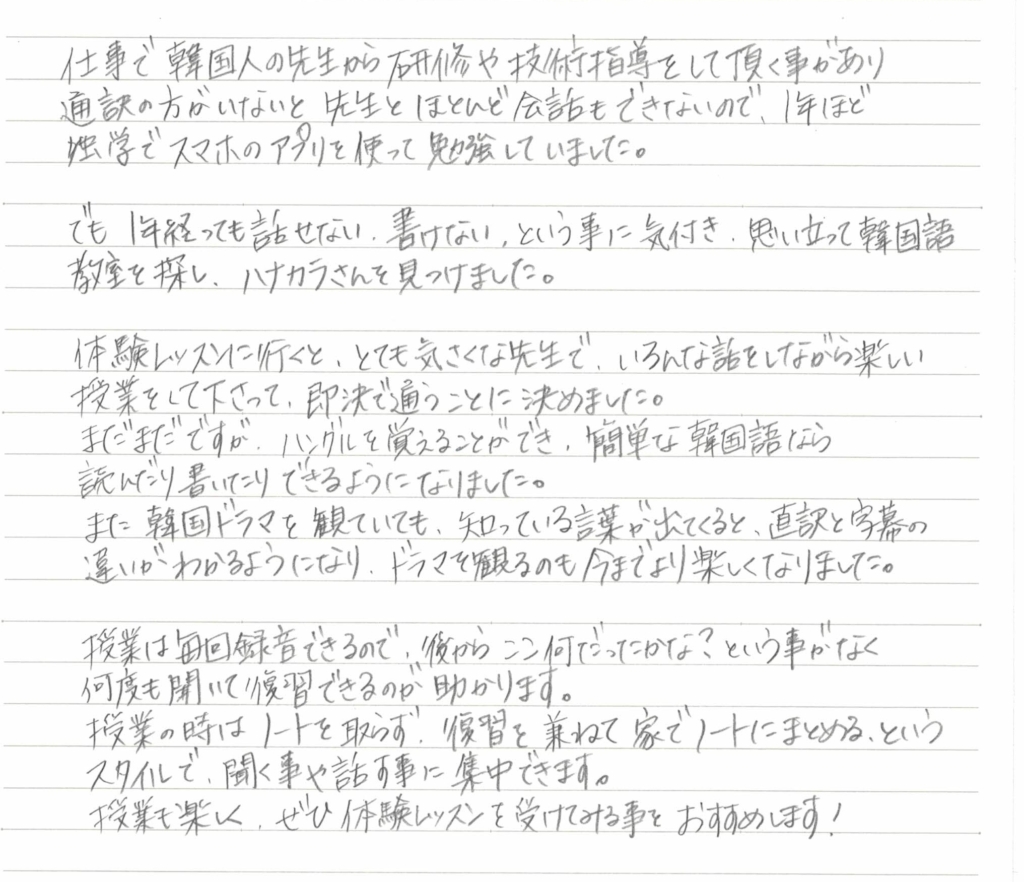 仕事で韓国人の先生から研修や技術指導をして頂く事があり
通訳の方がいないと先生とほとんど会話もできないので、1年ほど
独学でスマホのアプリを使って勉強していました。
でも1年経っても話せない、書けない、という事に気付き、思い立って韓国語
教室を探し、ハナカラさんを見つけました。
体験レッスンに行くと、とても気さくな先生で、いろんな話をしながら楽しい
授業をして下さって、即決で通うことに決めました。
まだまだですが、ハングルを覚えることができ、簡単な韓国語なら
読んだり書いたりできるようになりました。
また韓国ドラマを観ていても、知っている言葉が出てくると、直訳と字幕の
違いがわかるようになり、ドラマを観るのも今までより楽しくなりました。
授業は毎回録音できるので、後からここ何だったかな?という事がなく
何度も聞いて復習できるのが助かります。
授業の時はノートを取らず、復習を兼ねて家でノートにまとめる、という
スタイルで、聞く事や話す事に集中できます。
授業も楽しく、ぜひ体験レッスンを受けてみる事をおすすめします!